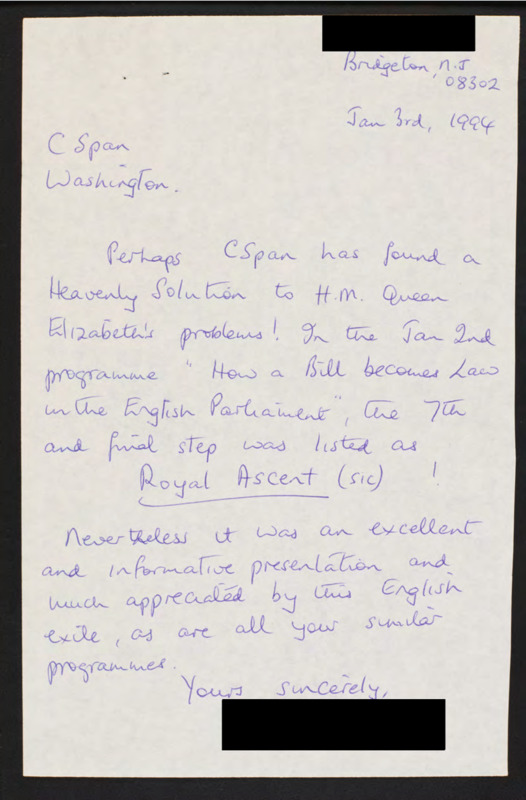 Bridgeton, N.J
08302
Jan 3rd, 1994
C Span
Washington.
Perhaps CSpan has found a
Heavenly Solution to H.M. Queen
Elizabeth's problems! In the Jan 2nd
programme "How a Bill becomes Law
in the English Parliament", the 7th
and final step was listed as
Royal Ascent (sic) !
Nevertheless it was an excellent
and informative presentation and
much appreciated by this English
exile, as are all your similar
programmes.
Yours sincerely,